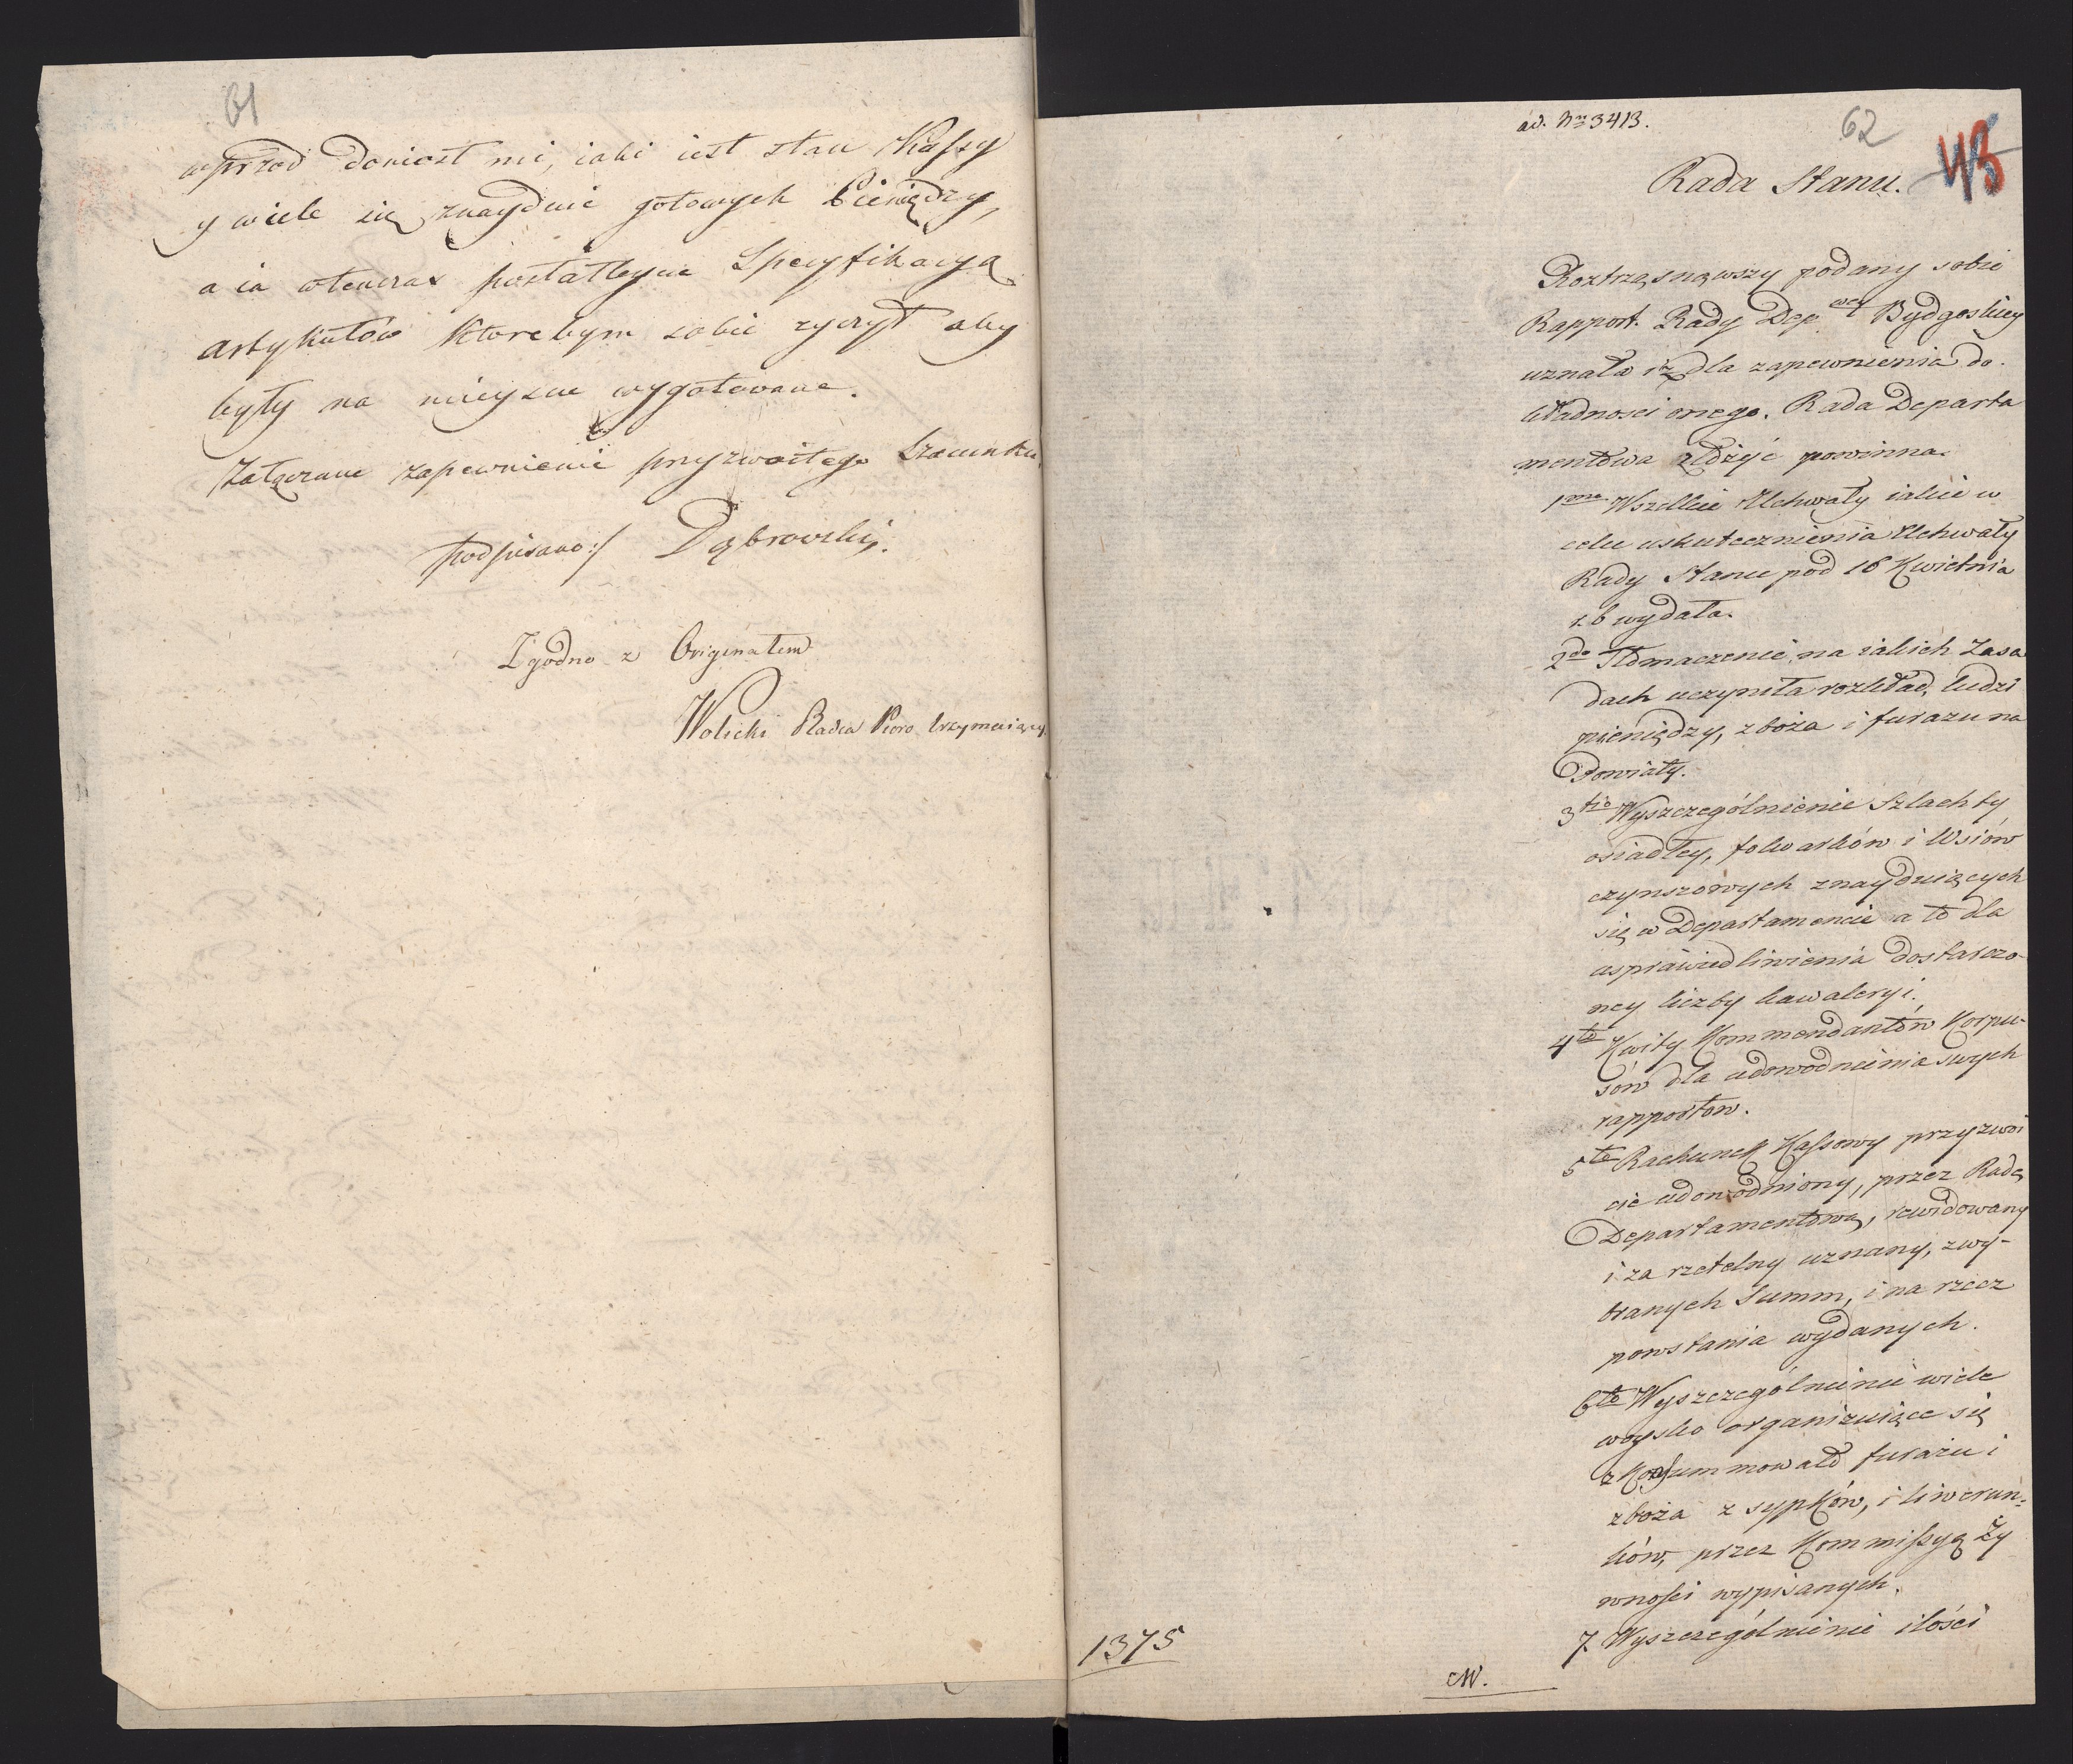 61
wprzod doniosł mi, iaki iest stan Kassy
y wiele się znayduie gotowych Pieniędzy,
a ia wtenczas Specyfikacyą
Artykułów ktorebym sobie zyczył aby
były na mieysce wygotowane.
Załączam zapewnienie przyzwoitego Szacunku.
podpisano:/ Dąbrowski.
Zgodno z Originałem
Wolicki Radca Pioro trzymaiący.
ad. Nro 3413.
62
43
Rada Stanu.
Roztrząsnąwszy podany sobie
Rapport. Rady Depwey Bydgoskiey
uznała iż dla zapewnienia do-
kładnosci onego. Rada Departa
mentowa złożyć powinna.
1mo Wszelkie Uchwały iakie w
celu uskutecznienia Uchwały
Rady Stanu pod 16 Kwietnia
r. b wydała.
2do Tłomaczenie na iakich Zasa
dach uczyniła rozkład, ludzi
pieniędzy, zboża i furazu na
Powiaty.
3tio Wyszczególnienie Szlachty
osiadłey, folwarków i Wsiów
czynszowych znayduiących
się w Departamencie a to dla
usprawiedliwienia dostarczo-
ney liczby kawaleryi.
4to Kwity Kommendantów Korpu-
sów dla udowodnienia swych
rapportow.
5to Rachunek Kassowy przyzwoi
cie udowodniony, przez Radę
Departamentową, rewidowany
i za rzetelny uznany, z wy-
branych Summ, i na rzecz
powstania wydanych.
6to Wyszczególnienie wiele
woysko organizuiące się
zkonsummowało furażu i
zboża z sypków, i liwerun-
ków, przez Kommissyą Ży
wnosci wypisanych.
7. Wyszczególnienie ilości
1375
CW.